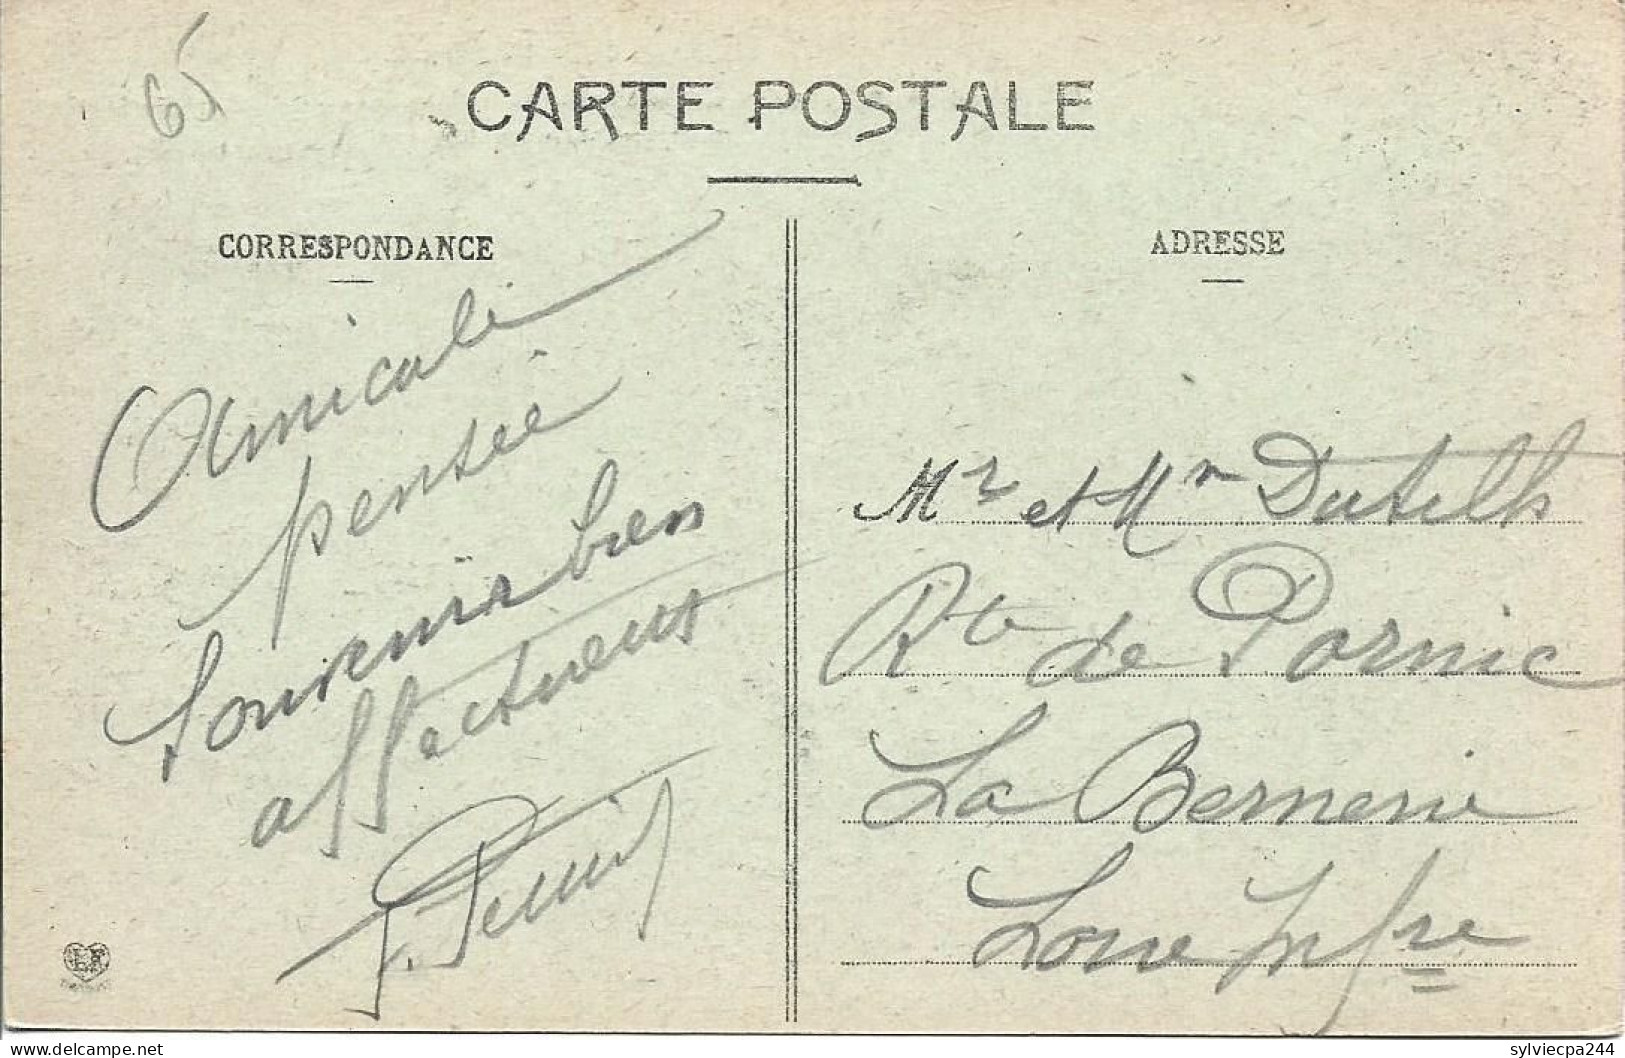 65
CARTE POSTALE
CORRESPONDANCE
Amicale
pensée
Souvenir bien
affectueux
ADRESSE
Mr et Mm Dutilh
Rte de Pornic
La Bernerie
Loire Infre
delcampe.net
sylviecpa244